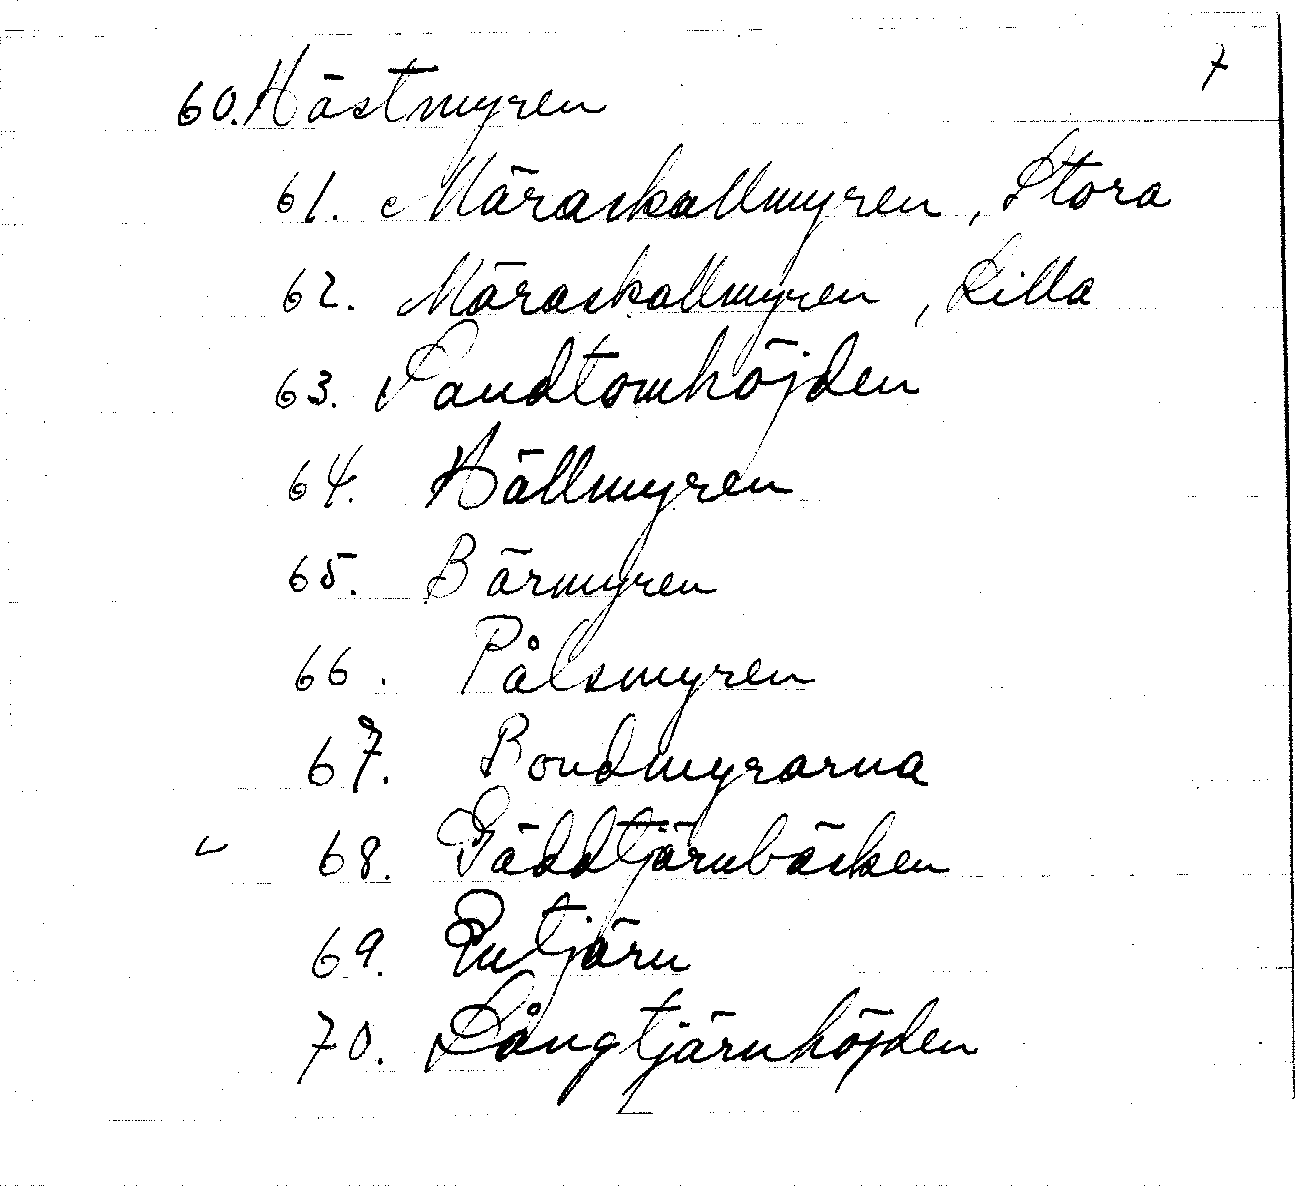 7
60. Hästmyren
61. Märaskallmyren, Stora
62. Märaskallmyren, Lilla
63. Sandtomhöjden
64. Hällmyren
65. Bärmyren
66. Pålsmyren
67. Bondmyrarna
68. Gäddtjärnbäcken
69.
70. Långtjärnhöjden